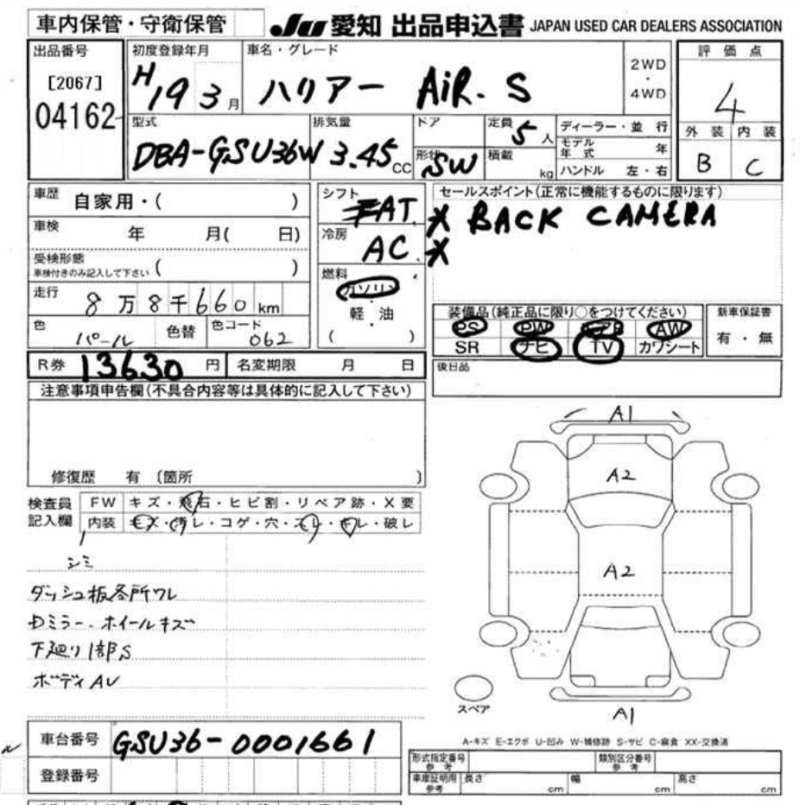 車内保管・守衛保管
JU 愛知 出品申込書 JAPAN USED CAR DEALERS ASSOCIATION
出品番号
[2067]
04162
初度登録年月
H 19 3 月
車名・グレード
ハリアー AiR. S
2WD
・
4WD
評価点
4
外装 内装
B C
型式
DBA-GSU36W
排気量
3.45 CC
ドア
形状
SW
定員
5 人
積載
kg
ディーラー・並行
モデル年式 年
ハンドル 左・右
車歴 自家用・( )
車検 年 月( 日)
受検形態
車検付きのみ記入して下さい ( )
走行 8万8千660km
色 パール 色替
色コード 062
シフト
FAT
冷房
AC
燃料
ガソリン
軽・油
( )
セールスポイント(正常に機能するものに限ります)
X BACK CAMERA
X
装備品(純正品に限り○をつけてください)
PS PW エアB AW
SR ナビ TV カワシート
新車保証書
有・無
R券 13630 円
名変期限 月 日
後日品
注意事項申告欄(不具合内容等は具体的に記入して下さい)
修復歴 有 (箇所 )
検査員
記入欄
FW キズ・飛石・ヒビ割・リペア跡・X要
内装 キズ・汚レ・コゲ・穴・スレ・キレ・破レ
シミ
ダッシュ板各所ワレ
Dミラー、ホイールキズ
下廻り1部S
ボディAU
A1
A2
A2
A1
スペア
A-キズ E-エクボ U-凹み W-補修跡 S-サビ C-腐食 XX-交換済
車台番号 GSU36-0001661
登録番号
形式指定番号
参考
類別区分番号
参考
車庫証明用
参考
長さ cm
幅 cm
高さ cm